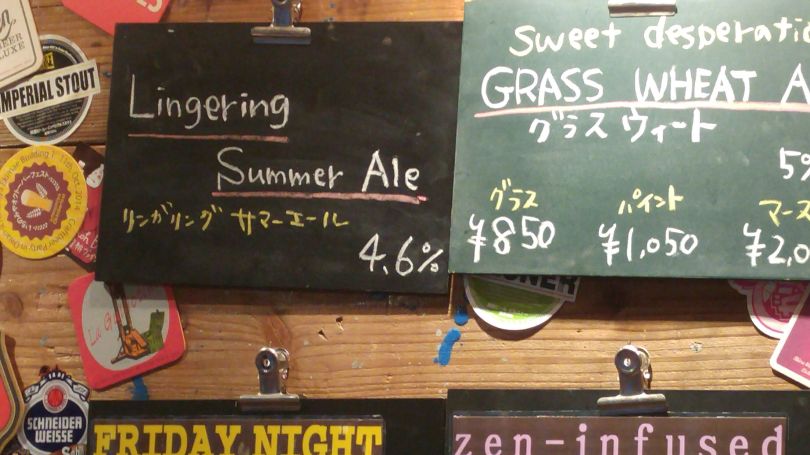 Lingering
Summer Ale
リンガリング サマーエール
4.6%
sweet
GRASS WHEAT
グラスウィート
5%
グラス パイント
¥850 ¥1,050
IMPERIAL STOUT
SCHNEIDER
WEISSE
FRIDAY NIGHT
zen-infused